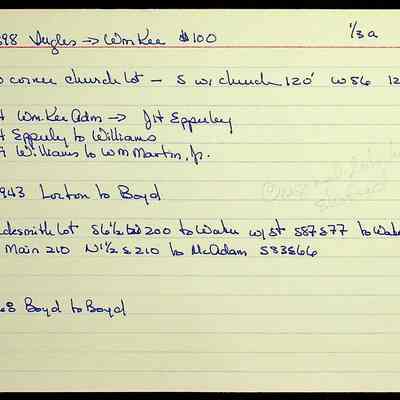 898 Ingles → Wm Kee $100 1/3 a
corner church lot — S w/ church 120' W 56 12
Wm Kee Adm → JH Epperley
Epperly to Williams
Williams to Wm Martin, Jr.
1943 Lorton to Boyd
cksmith lot S 6 1/2 200 to w/ st S87 E77 to
Main 210 N 1/2 E 210 to McAdam S83 E66
68 Boyd to Boyd